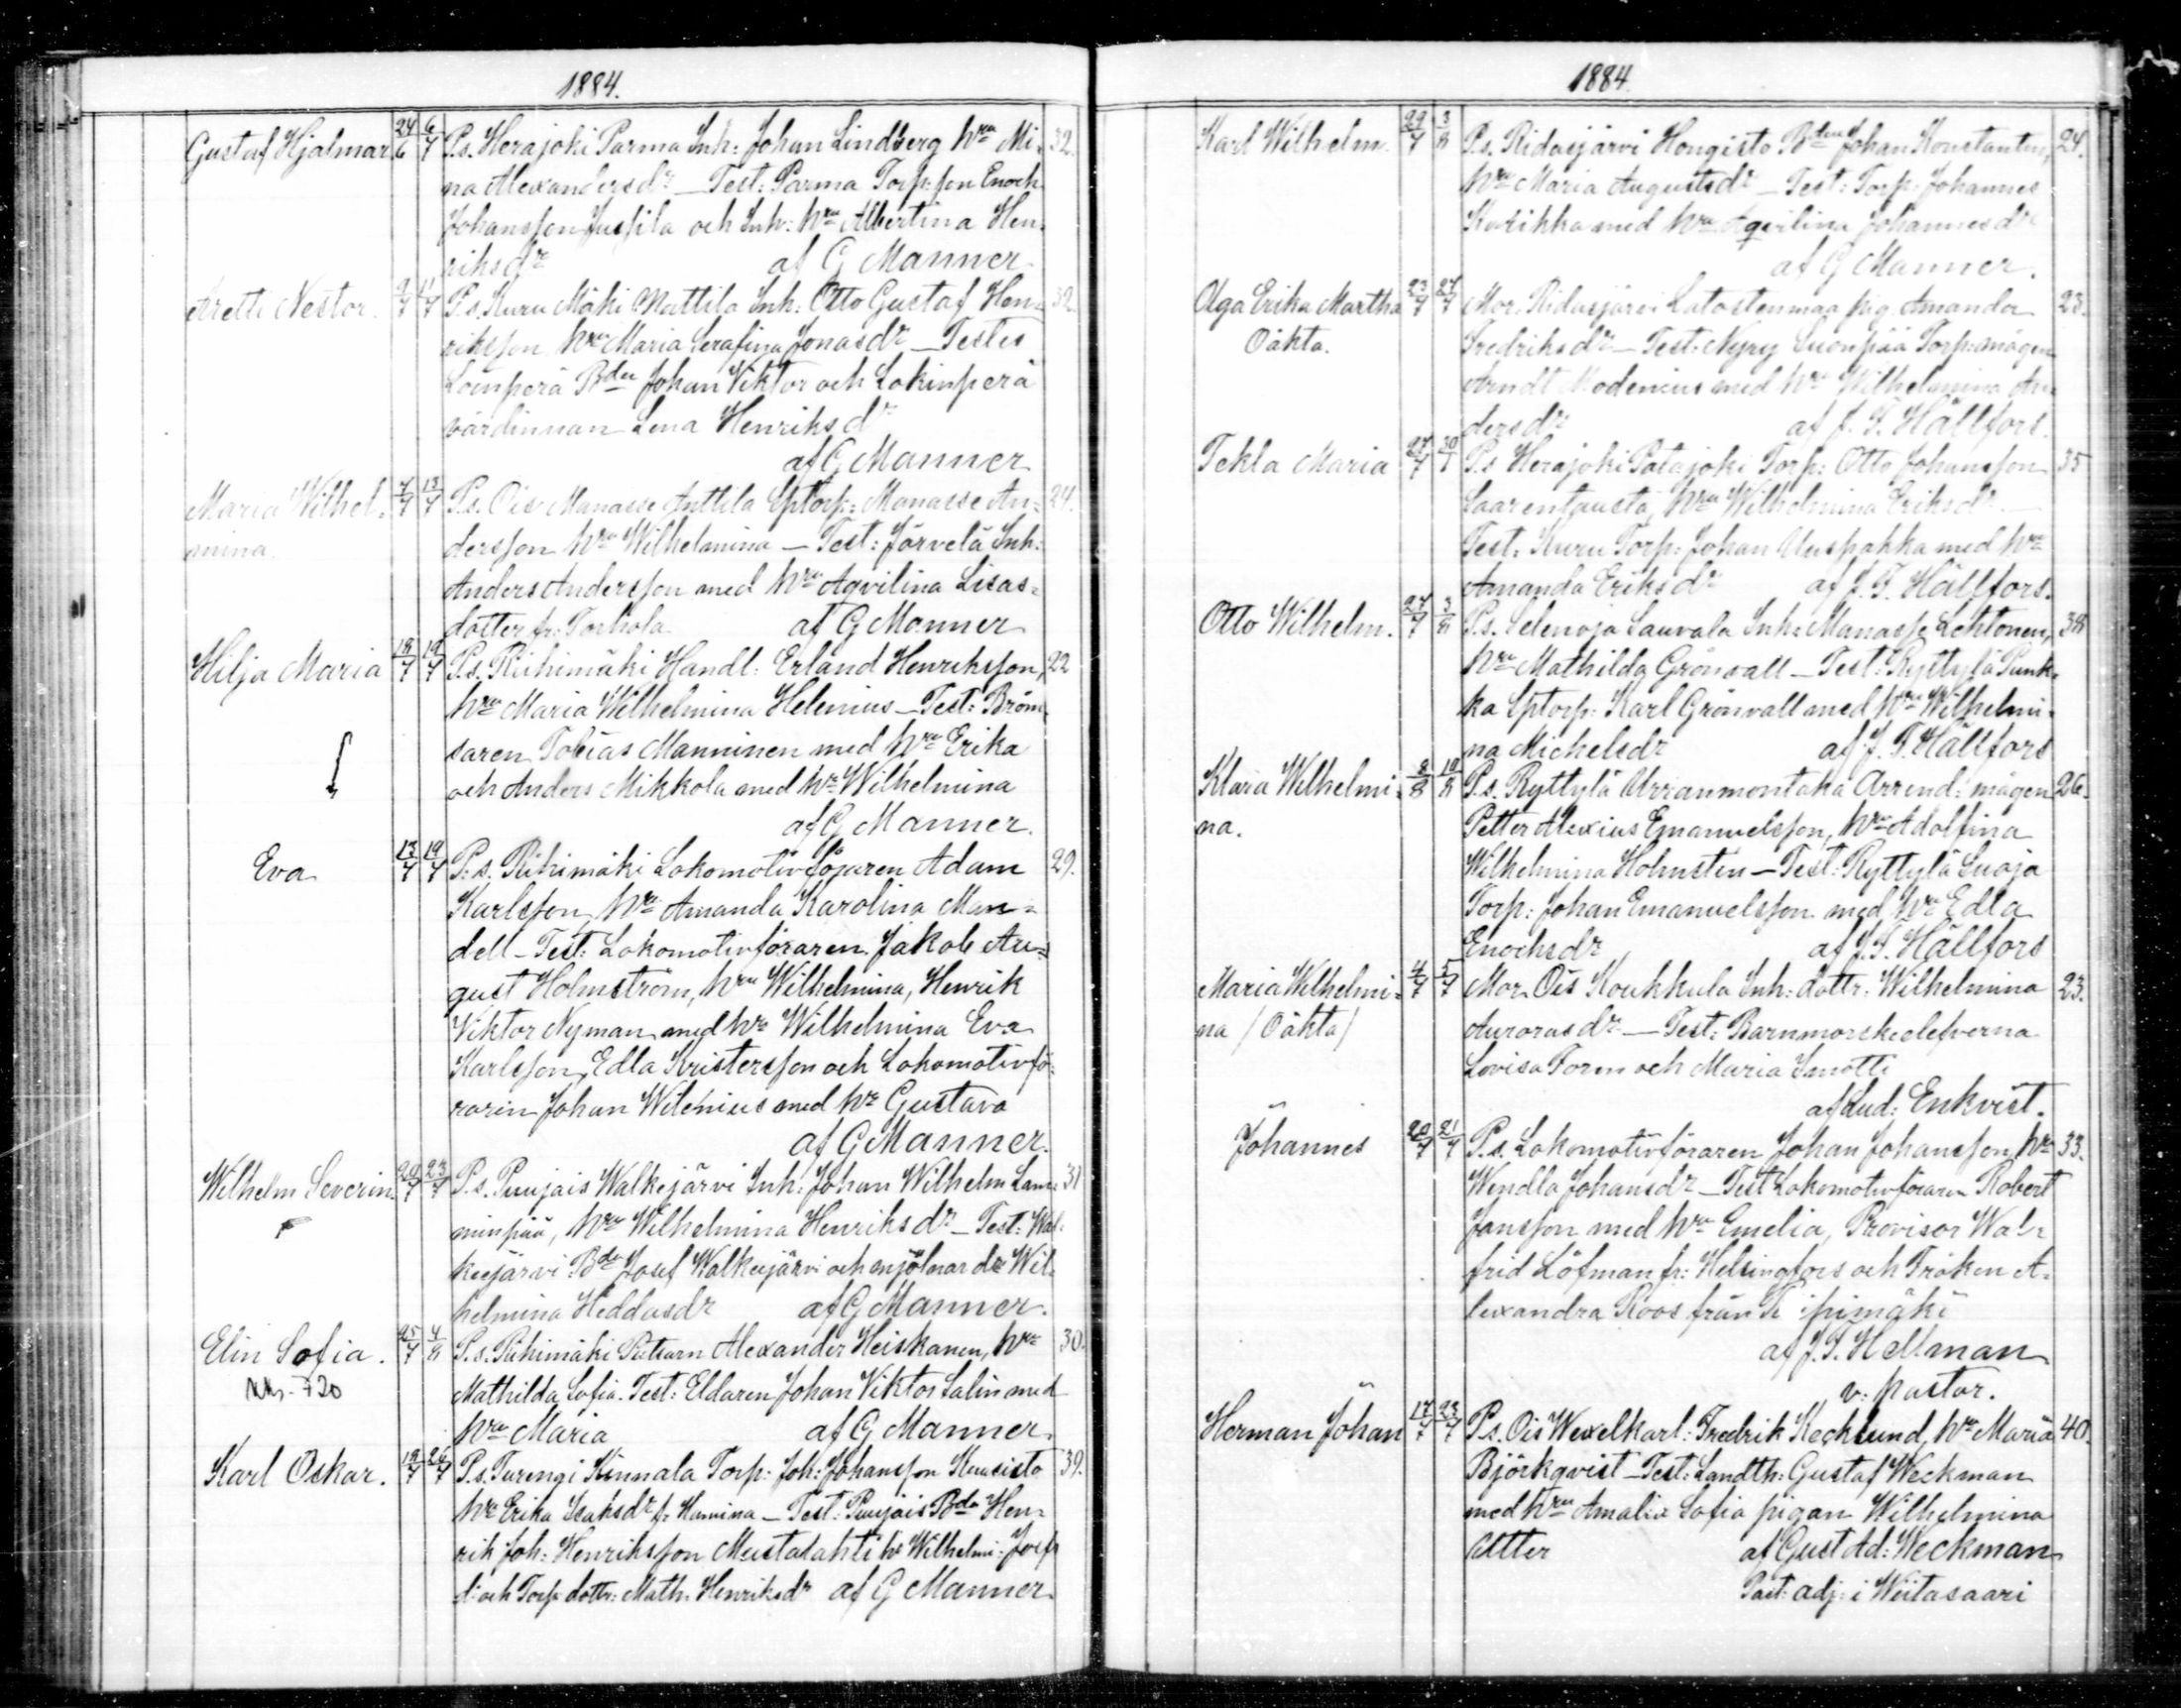 1884.
Gustaf Hjalmar 24/6 6/7 P.s. Herajoki Parma Inh: Johan Lindberg hru Mi= 32.
na Alexandersdr _ Test: Parma Torp: son Enoch
Johansson Jussila och Inh: hru Albertina Hen=
riksdr af G Manner
Nestor. 9/7 11/7 P.s. Kuru Mäki Mattila Inh: Otto Gustaf Hen= 32
riksson, hru Maria Serafina Jonasdr _ Testes
Bden Johan Viktor och Lokinperä
värdinnan Lena Henriksdr
af G Manner
Maria Wilhel= 7/7 13/7 P.s. Ois Manasse Anttila Sptorp: Manasse An= 24.
mina dersson hru Wilhelmina _ Test: Järvelä Inh:
Anders Andersson med hru Aqvilina Lisas=
dotter fr: Torhola af G Manner
Hilja Maria 18/7 19/7 P.s. Riihimäki Handl: Erland Henriksson, 22
hru Maria Wilhelmina Helenius _ Test: Bröm=
saren Tobias Manninen med hru Erika
och Anders Mikkola med hru Wilhelmina
af G Manner.
Eva 13/7 19/7 P.s. Riihimäki Lokomotivföraren Adam 29.
Karlsson, hru Amanda Karolina Man=
dell _ Test: Lokomotivföraren Jakob Au=
gust Holmström, hru Wilhelmina, Henrik
Viktor Nyman med hru Wilhelmina Eva
Karlsson, Edla Kristersson och Lokomotivfö=
raren Johan Wilenius med hru Gustava
af G Manner.
Wilhelm Severin 20/7 23/7 P.s. Puujais Walkejärvi Inh: Johan Wilhelm Lam= 31
minpää, hru Wilhelmina Henriksdr _ Test: Wal=
keejärvi Bdn Josef Walkeejärvi och mjölnar dr Wil=
helmina Heddasdr af G Manner.
Elin Sofia. 25/7 4/8 P.s. Riihimäki Putsarn Alexander Heiskanen, hru 30.
720 Mathilda Sofia. Test: Eldaren Johan Viktor Salin med
hru Maria af G Manner.
Karl Oskar. 19/7 26/7 P.s. Turengi Kinnala Torp: Joh: Johansson Kuusisto 39.
hru Erika Isaksdr fr _ Test: Puujais Bdn Hen=
rik Joh: Henriksson Mustalahti hr Wilhelmi: Josefs
d: och Torp dottr: Math. Henriksdr af G Manner
1884.
Karl Wilhelm. 29/7 3/8 P.s. Ridasjärvi Hongisto Bden Johan Konstantin, 24.
hru Maria Augustsdr _ Test: Torp: Johannes
med hru Aqvilina Johannesdr
af G Manner.
Olga Erika Martha 23/7 27/7 Mor. Ridasjärvi Latostenmaa pig. Amanda 23.
Oäkta. Fredriksdr _ Test: Nyry Suonpää Torp: mågen
Arndt Modenius med hru Wilhelmina An=
dersdr af J. F. Hällfors.
Tekla Maria 27/7 30/7 P.s Herajoki Patajoki Torp: Otto Johansson 35
Saarentausta, hru Wilhelmina Eriksdr _
Test: Kuru Torp: Johan Uuspakka med hru
Amanda Eriksdr af J. F. Hällfors.
Otto Wilhelm. 27/7 3/8 P.s. Selenoja Sauvala Inh: Manasse Lehtonen, 38
hru Mathilda Grönvall _ Test: Ryttylä Punk=
ka Sptorp: Karl Grönvall med hru Wilhelmi=
na Michelsdr af J. F. Hällfors
Klara Wilhelmi= 8/8 10/8 P.s. Ryttylä Urranmontaka Arrend: mågen 26.
na. Petter Alexius Emanuelsson, hru Adolfina
Wilhelmina Holmsten _ Test: Ryttylä Suoja
Torp: Johan Emanuelsson med hru Edla
Enochsdr af J. F. Hällfors
Maria Wilhelmi= 4/7 5/7 Mor. Ois Koukkula Inh: dottr: Wilhelmina 23.
na / Oäkta / Aurorasdr _ Test: Barnmorskeelefverna
Lovisa Form och Maria
af Lud: Enkvist.
Johannes 20/7 21/7 P.s. Lokomotivföraren Johan Johansson, hru 33.
Wendla Johansdr _ Test Lokomotivföraren Robert
Jansson med hru Emelia, Provisor Wal=
frid Löfman fr: Helsingfors och Fröken A=
lexandra Roos från
af J. F. Hellman
v: pastor.
Herman Johan 17/7 23/7 P.s. Ois Wexelkarl: Fredrik hru Maria 40.
Björkqvist _ Test: Landth: Gustaf Weckman
med hru Amalia Sofia pigan Wilhelmina
af Gust Ad: Weckman
Past: adj: i Wiitasaari